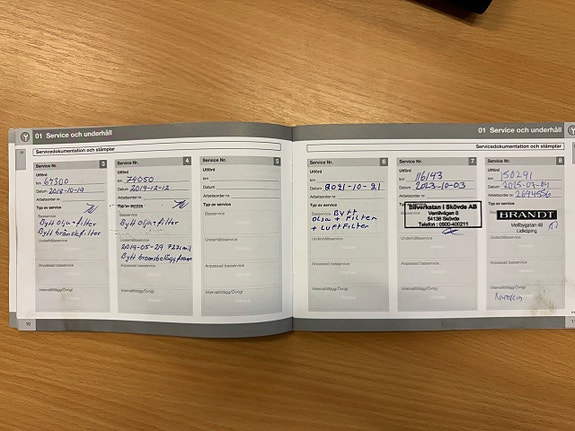 01 Service och underhåll
Servicedokumentation och stämplar
Service Nr. 3
Utförd
km 64300
Datum 2018-10-19
Arbetsorder nr
Typ av service
Basservice
Bytt olja + filter
Bytt bränslefilter
Underhållsservice
Anpassad basservice
Intervalltillägg/Övrigt
10
Service Nr. 4
Utförd
km 74050
Datum 2019-12-12
Arbetsorder nr
Typ av service
Basservice
Bytt olja + filter
Underhållsservice
2019-05-29
Anpassad basservice
Intervalltillägg/Övrigt
Service Nr. 5
Utförd
km
Datum
Arbetsorder nr
Typ av service
Basservice
Underhållsservice
Anpassad basservice
Intervalltillägg/Övrigt
01 Service och underhåll
Servicedokumentation och stämplar
Service Nr. 6
Utförd
km
Datum 2021-10-21
Arbetsorder nr
Typ av service
Basservice BYTT
OLJA + FILTER
+ LUFTFILTER
Underhållsservice
Anpassad basservice
Intervalltillägg/Övrigt
Service Nr. 7
Utförd
km 116143
Datum 2023-10-03
Arbetsorder nr
Typ av service
Silverkatan i Skövde AB
Ventilvägen 8
54138 Skövde
Telefon : 0500-400211
Underhållsservice
Anpassad basservice
Intervalltillägg/Övrigt
Service Nr. 8
Utförd
km 150291
Datum
Arbetsorder nr
Typ av service
BRANDT
Mellbygatan 48
Lidköping
Underhållsservice
Anpassad basservice
Intervalltillägg/Övrigt